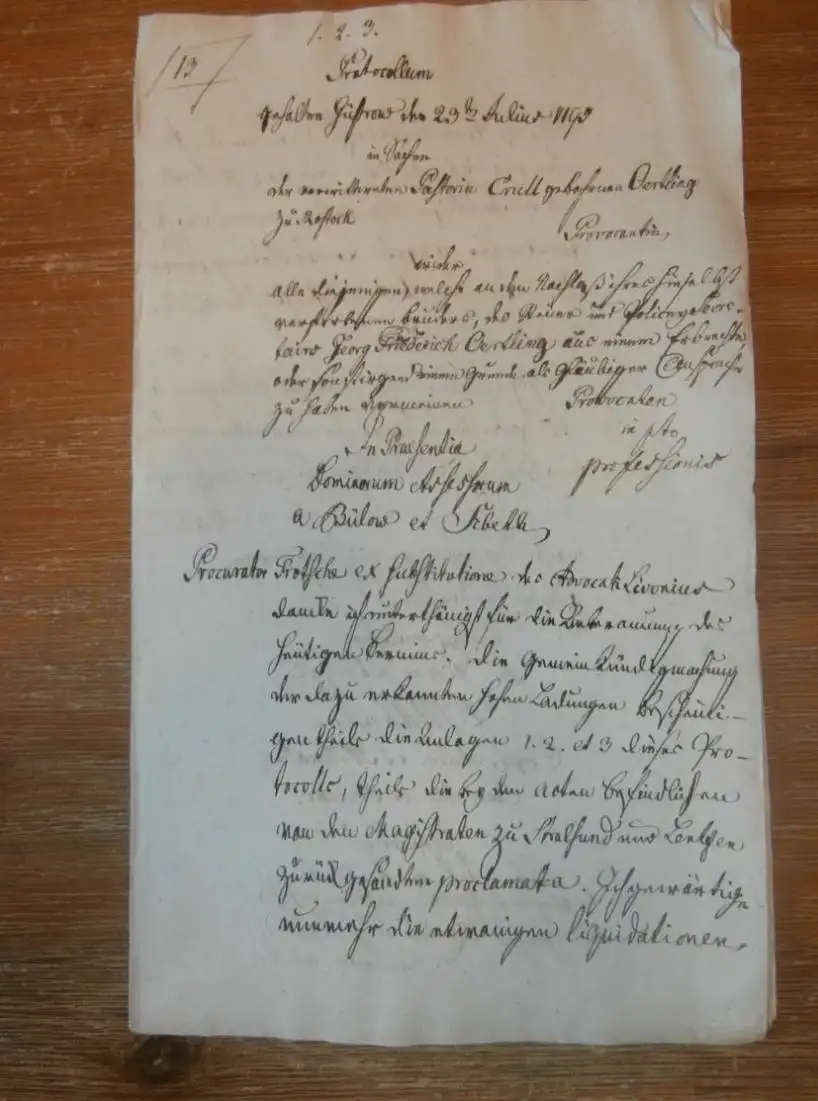 1. 2. 3.
13
Protocollum
gehalten Güstrow den 23ten Julius
in Sachen
der verwittweten Pastorin Crull gebohrnen Oertling
zu Rostock
Provocantin,
wider
alle diejenigen, welche an dem Nachlaß ihres hieselbst
verstorbenen Bruders, des Steuer und Policey Secre-
tairs Georg Friederich Oertling aus einem Erbrechte,
oder sonst irgend einem Grunde als Gläubiger Ansprache
zu haben vermeinen
Provocaten
in pto
professionis
In Praesentia
Dominorum Assessorum
a Bülow et
Procurator ex substitutione des Advocati Livonius
danke ich unterthänigst für die Anberaumung des
heutigen Termins. Die Gemeinkündigmachung
der dazu erkannten hohen Ladungen bescheini-
gen theils die Anlagen 1. 2. et 3 dieses Pro-
tocolls, theils die bey den Acten befindlichen
von den Magistraten zu Stralsund und
zurück gesandten proclamata. Ich gewärtige
nunmehr die etwanigen liquidationen,